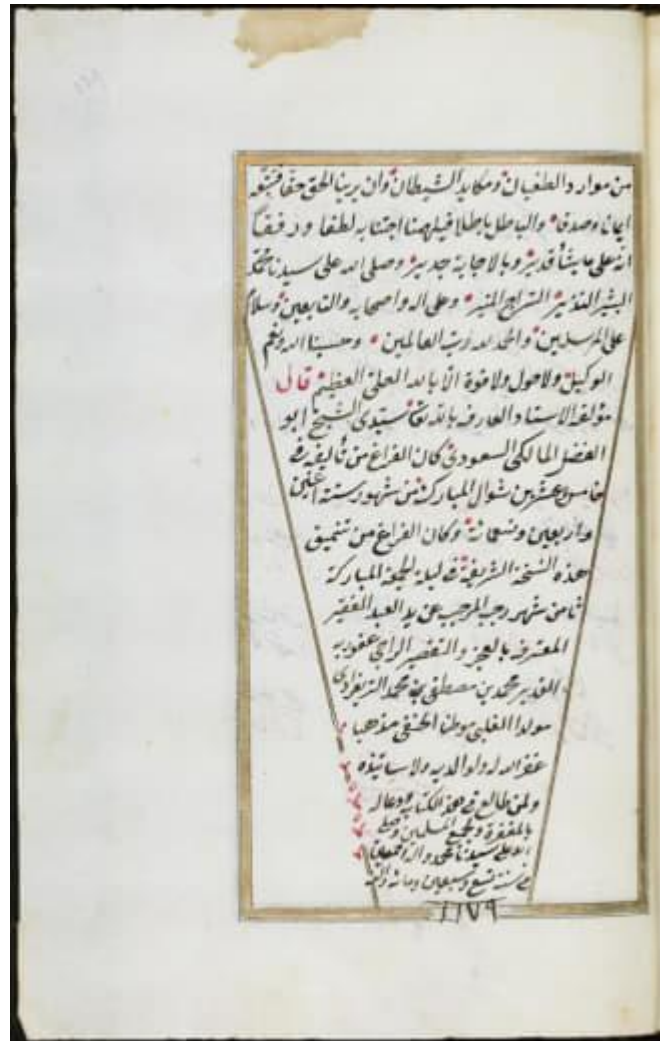 من موارد الطغيان ومكايد الشيطان وان يرينا الحق حقا فنتبعه
ايمانا وصدقا والباطل باطلا فيلهمنا اجتنابه لطفا ورفقا
انه على ما يشأ قدير وبالاجابة جدير وصلى الله على سيدنا محمد
البشير النذير السراج المنير وعلى اله واصحابه والتابعين وسلام
على المرسلين والحمد لله رب العالمين وحسبنا الله ونعم
الوكيل ولاحول ولا قوة الا بالله العلى العظيم قال
مؤلفه الاستاد العارف بالله تعا سيدى الشيخ ابو
الفضل المالكى السعودى كان الفراغ من تأليفه فى
خامس عشرين شوال المبارك من شهور سنة اثنين
واربعين وتسعمائة وكان الفراغ من تنميق
هذه النسخة الشريفة فى ليلة الجمعة المباركة
ثامن شهر رجب المرجب عن يد العبد الفقير
المعترف بالعجز والتقصير الراجى عفو ربه
القدير محمد بن مصطفى بن محمد
مولدا موطنا الحنفى مذهبا
غفر الله له ولوالديه ولاساتيذه
ولمن طالع فى هذا الكتاب ودعا له
بالمغفرة ولجميع المسلمين وصلى
الله على سيدنا محمد واله اجمعين
فى سنة تسع وسبعين ومائة والف
١١٧٩